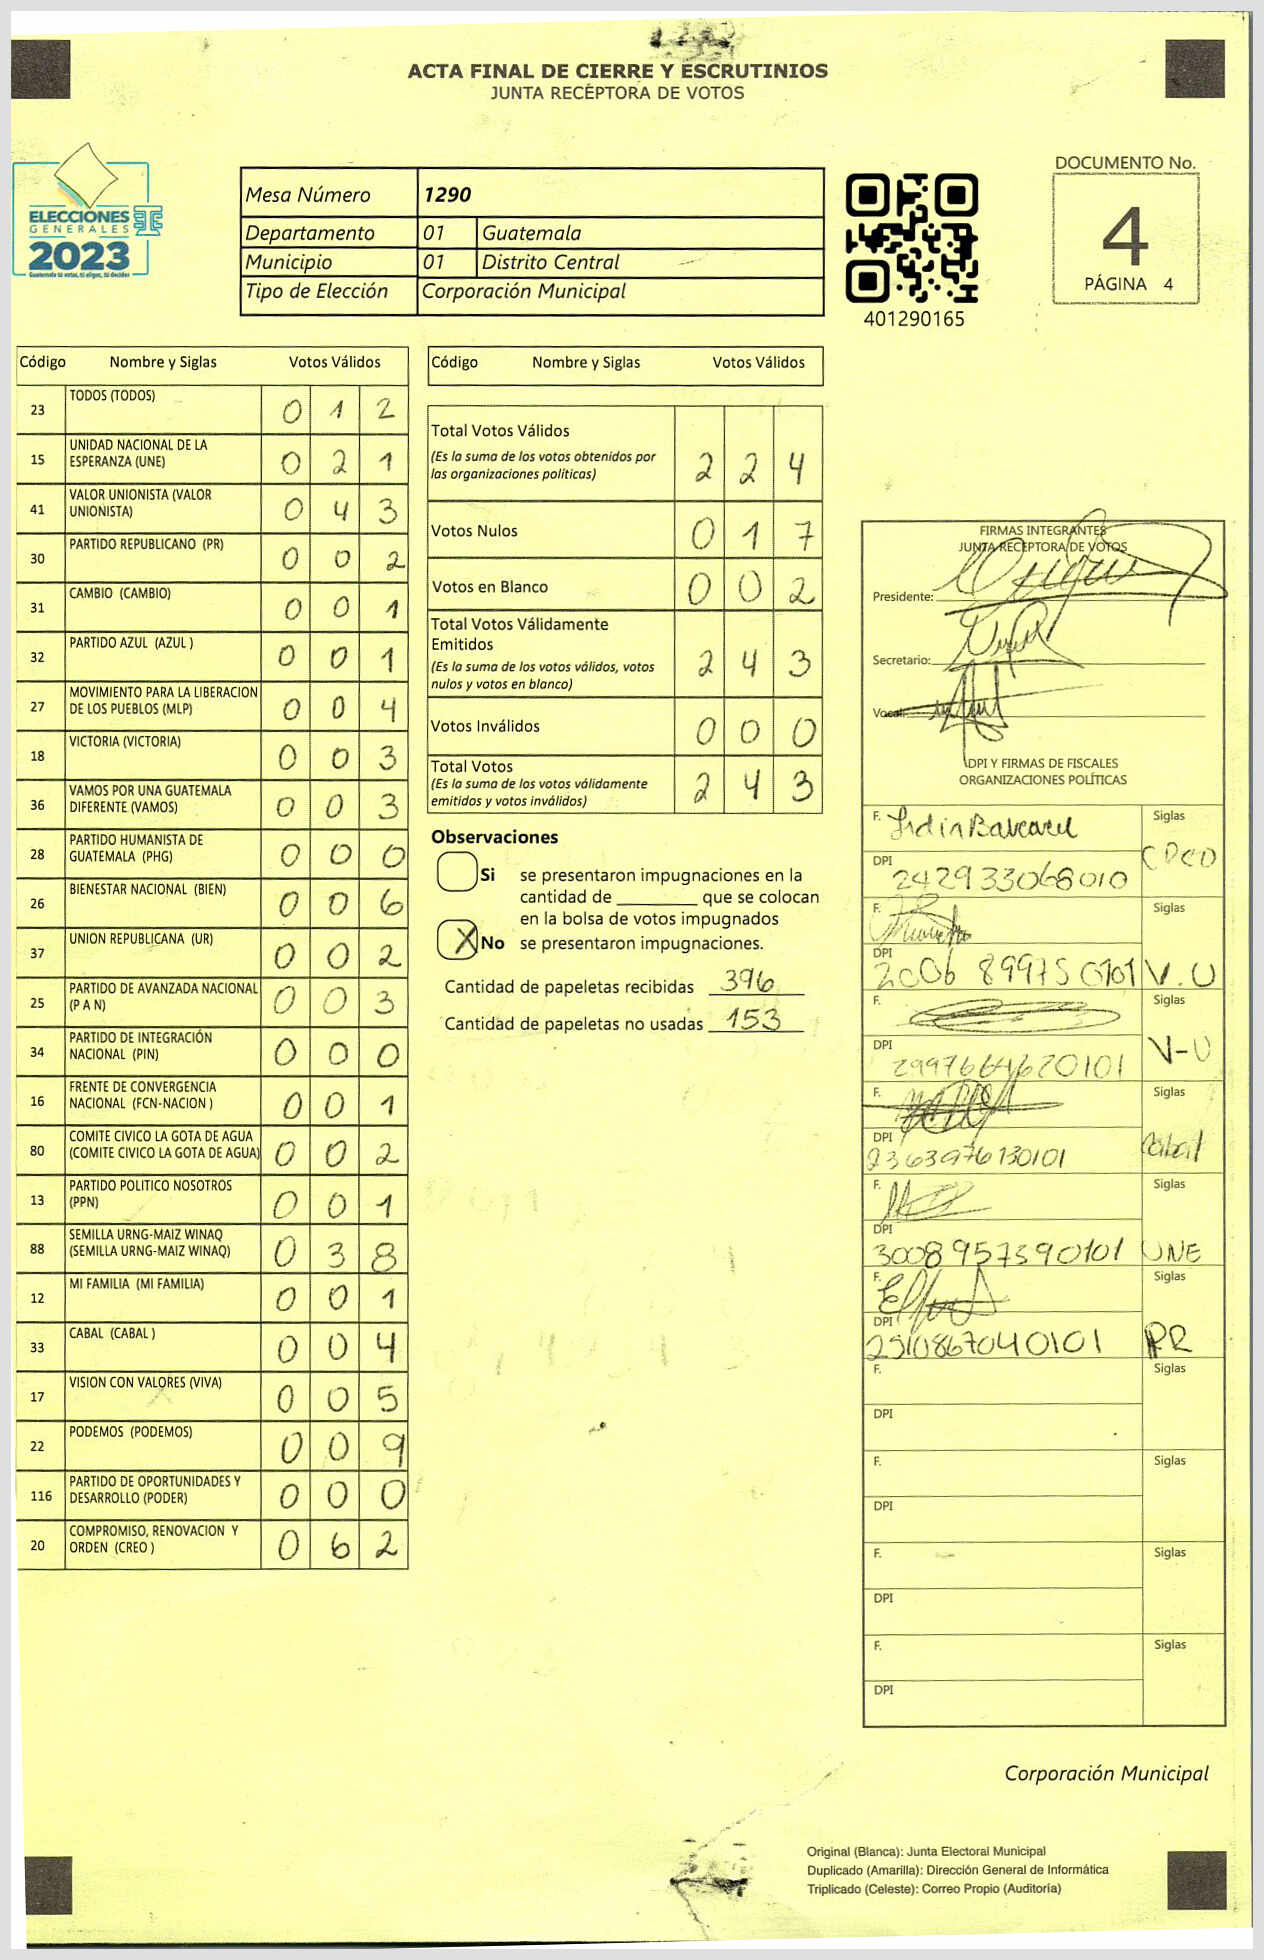 ACTA FINAL DE CIERRE Y ESCRUTINIOS
JUNTA RECEPTORA DE VOTOS
ELECCIONES
GENERALES
2023
Guatemala tú votas, tú eliges, tú decides
Mesa Número 1290
Departamento 01 Guatemala
Municipio 01 Distrito Central
Tipo de Elección Corporación Municipal
401290165
DOCUMENTO No.
4
PÁGINA 4
Código Nombre y Siglas Votos Válidos
23 TODOS (TODOS) 0 1 2
15 UNIDAD NACIONAL DE LA
ESPERANZA (UNE) 0 2 1
41 VALOR UNIONISTA (VALOR
UNIONISTA) 0 4 3
30 PARTIDO REPUBLICANO (PR) 0 0 2
31 CAMBIO (CAMBIO) 0 0 1
32 PARTIDO AZUL (AZUL ) 0 0 1
27 MOVIMIENTO PARA LA LIBERACION
DE LOS PUEBLOS (MLP) 0 0 4
18 VICTORIA (VICTORIA) 0 0 3
36 VAMOS POR UNA GUATEMALA
DIFERENTE (VAMOS) 0 0 3
28 PARTIDO HUMANISTA DE
GUATEMALA (PHG) 0 0 0
26 BIENESTAR NACIONAL (BIEN) 0 0 6
37 UNION REPUBLICANA (UR) 0 0 2
25 PARTIDO DE AVANZADA NACIONAL
(P A N) 0 0 3
34 PARTIDO DE INTEGRACIÓN
NACIONAL (PIN) 0 0 0
16 FRENTE DE CONVERGENCIA
NACIONAL (FCN-NACION ) 0 0 1
80 COMITE CIVICO LA GOTA DE AGUA
(COMITE CIVICO LA GOTA DE AGUA) 0 0 2
13 PARTIDO POLITICO NOSOTROS
(PPN) 0 0 1
88 SEMILLA URNG-MAIZ WINAQ
(SEMILLA URNG-MAIZ WINAQ) 0 3 8
12 MI FAMILIA (MI FAMILIA) 0 0 1
33 CABAL (CABAL ) 0 0 4
17 VISION CON VALORES (VIVA) 0 0 5
22 PODEMOS (PODEMOS) 0 0 9
116 PARTIDO DE OPORTUNIDADES Y
DESARROLLO (PODER) 0 0 0
20 COMPROMISO, RENOVACION Y
ORDEN (CREO ) 0 6 2
Código Nombre y Siglas Votos Válidos
Total Votos Válidos
(Es la suma de los votos obtenidos por
las organizaciones políticas) 2 2 4
Votos Nulos 0 1 7
Votos en Blanco 0 0 2
Total Votos Válidamente
Emitidos
(Es la suma de los votos válidos, votos
nulos y votos en blanco) 2 4 3
Votos Inválidos 0 0 0
Total Votos
(Es la suma de los votos válidamente
emitidos y votos inválidos) 2 4 3
Observaciones
Si se presentaron impugnaciones en la
cantidad de ________ que se colocan
en la bolsa de votos impugnados
X No se presentaron impugnaciones.
Cantidad de papeletas recibidas 396
Cantidad de papeletas no usadas 153
FIRMAS INTEGRANTES
JUNTA RECEPTORA DE VOTOS
Presidente:
Secretario:
Vocal:
DPI Y FIRMAS DE FISCALES
ORGANIZACIONES POLÍTICAS
F. Siglas
DPI 242933068010
F. Siglas
DPI 2006 89975 0101 V.U
F. Siglas
DPI 2997664620101 V-U
F. Siglas
DPI 2363976130101 Cabal
F. Siglas
DPI 3008957390101 UNE
F. Siglas
DPI 2510867040101 PR
F. Siglas
DPI
F. Siglas
DPI
F. Siglas
DPI
F. Siglas
DPI
Corporación Municipal
Original (Blanca): Junta Electoral Municipal
Duplicado (Amarilla): Dirección General de Informática
Triplicado (Celeste): Correo Propio (Auditoría)